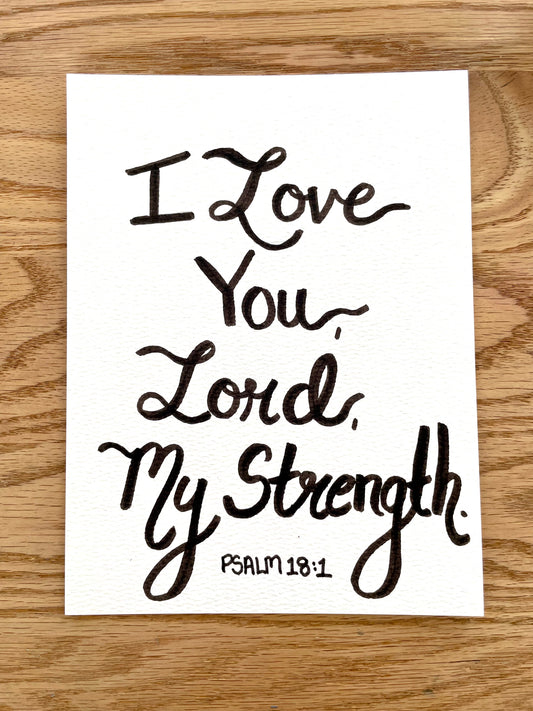 I Love
You,
Lord,
My Strength.
PSALM 18:1